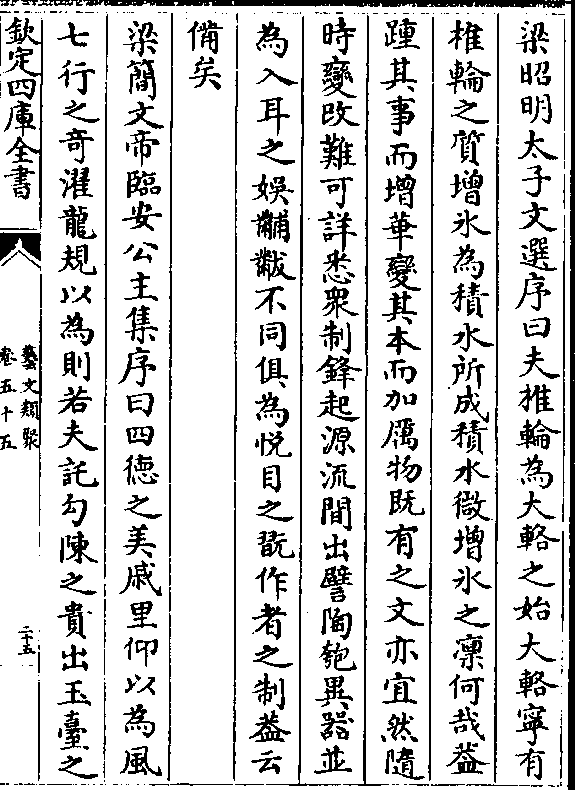 梁昭明太子文選序曰夫椎輪為大輅之始大輅寧有
椎輪之質增氷為積水所成積水微增氷之凛何哉葢
踵其事而增華變其本而加厲物既有之文亦宜然隨
時變改難可詳悉衆制鋒起源流間出譬陶匏異器並
為入耳之娛黼黻不同俱為悅目之翫作者之制葢云
備矣
梁簡文帝臨安公主集序曰四德之美戚里仰以為風
七行之奇濯龍規以為則若夫託勾陳之貴出玉臺之
欽定四庫全書
藝文類聚
卷五十五
二十五